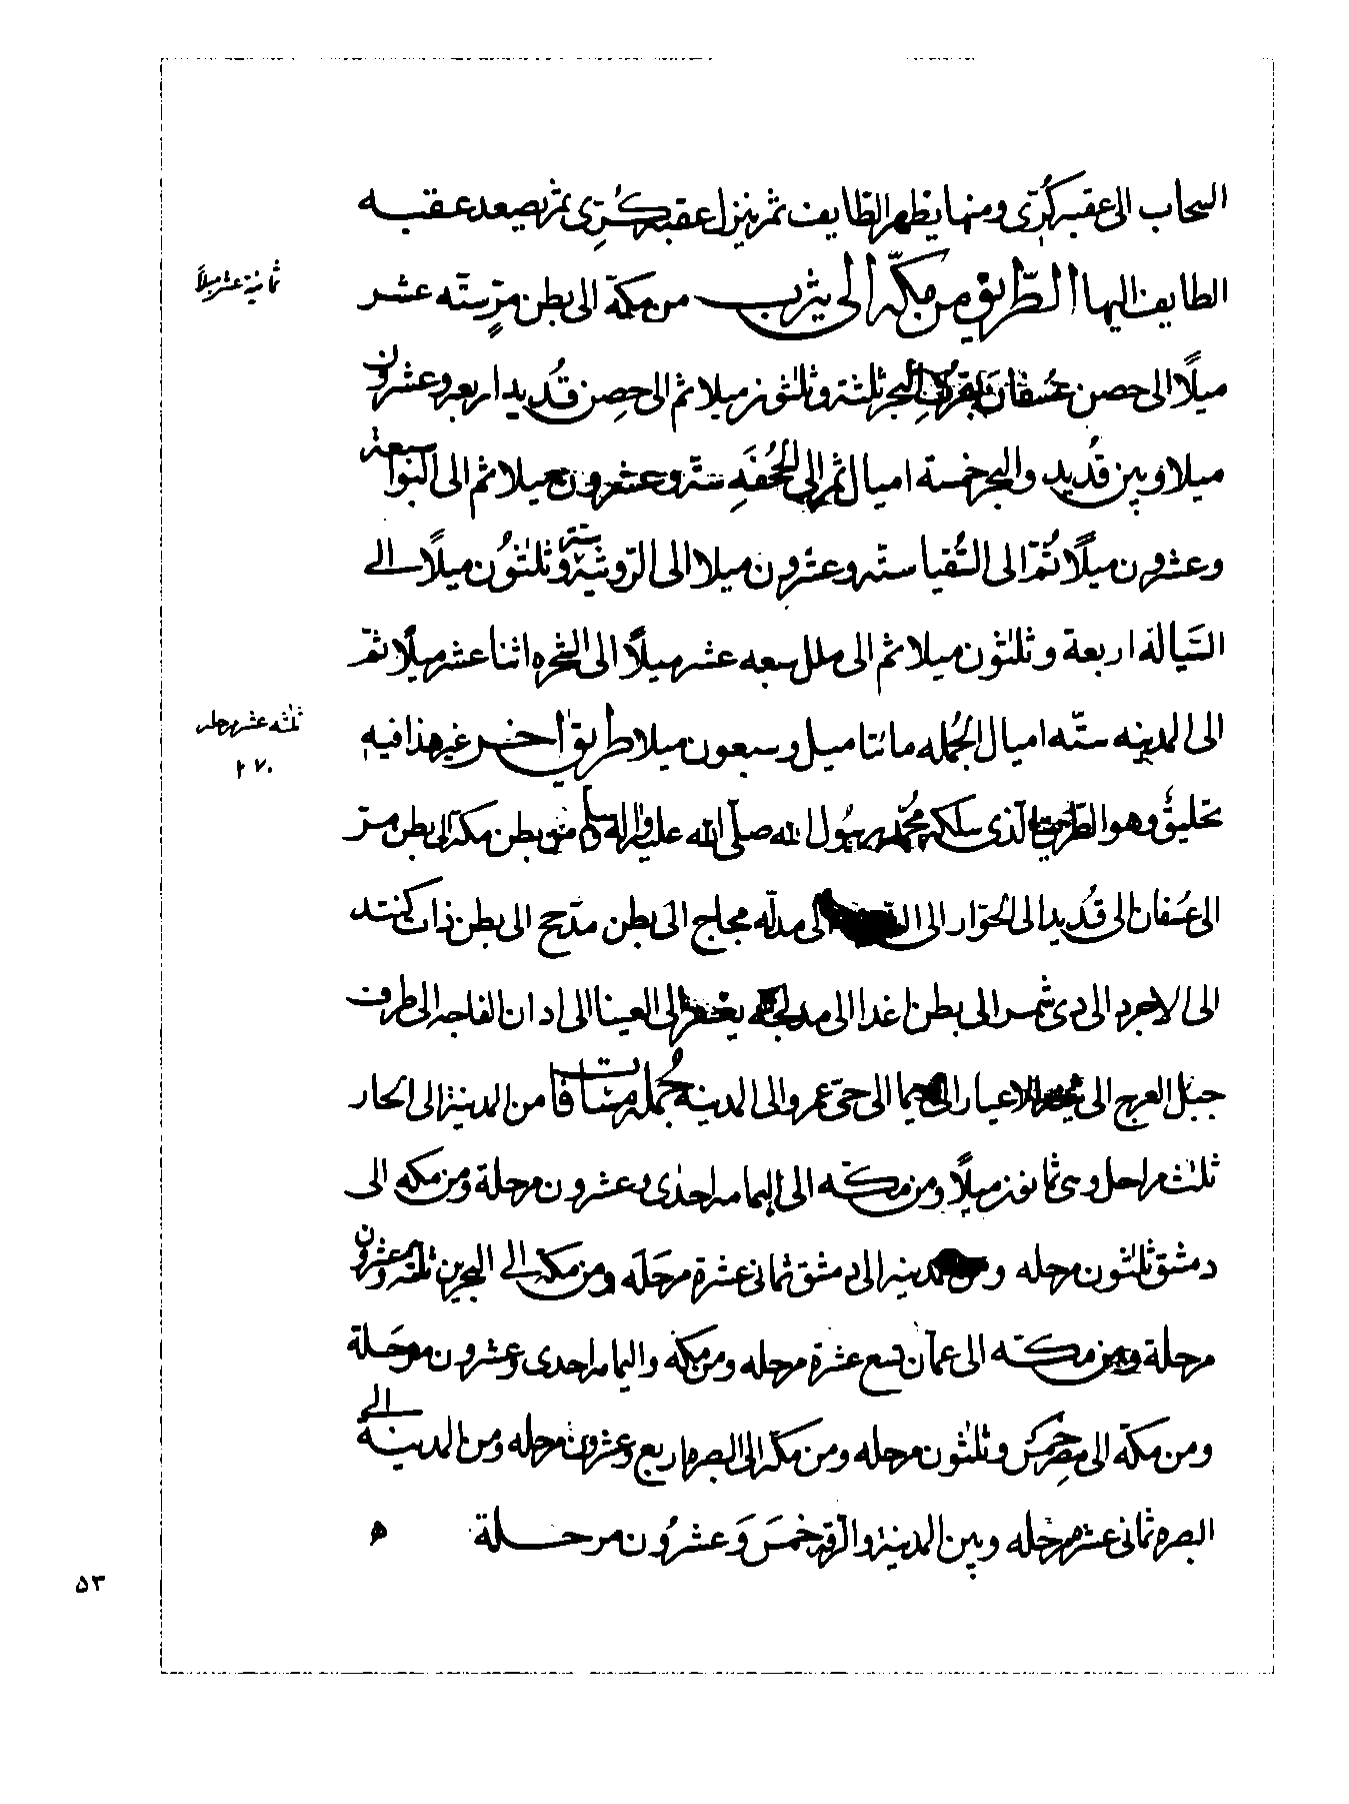 السحاب الى عقبه كُرّى ومنها يظهر الطايف ثمر ينزل عقبه كُرّى ثم يصعد عقبه
الطايف اليها الطّريق من مكّة الى يثرب من مكّة الى بطن مرّ ستّه عشر
ثمانية عشر ميلاً
ميلًا الى حصن عسفان البحر ثلثة وثلثون ميلا ثم الى حصن قُديد اربعه وعشرون
ميلا وبين قُديد والبحر خمسة اميال ثم الى الجُحفَه ستّة وعشرون ميلا ثم الى الابوا سبعة
وعشرون ميلًا ثمّ الى السُّقيا ستّه وعشرون ميلا الى الرّويثة ستة وثلثُون ميلًا الى
السَّيالة اربعة وثلثون ميلا ثم الى ملل سبعه عشر ميلًا الى الشجره اثنا عشر ميلًا ثمّ
الى المدينه ستّه اميال الجُمله مائتا ميل وسبعون ميلا طريق اخر غير هذا فيه
ثلثه عشر مرحله
٢٧٠
تحليقٌ وهو الطّريق الّذى سلكه محمّد رسول الله صلّى الله عليه واله من بطن مكة الى بطن مرّ
الى عُسفان الى قُديد الى الخرّار الى الى مدلّه مجاج الى بطن مدحج الى بطن ذات كشد
الى الاجرد الى ذى شمر الى بطن اغدا الى مدلجه الى العينا الى اذان الفاجه الى طرف
جبل العرج الى الاعيار الى الى حىّ عمرو الى المدينه جُمله من المدينة الى الجار
ثلث مراحل وهى ثمانون ميلًا ومن مكّه الى اليمامه احدى وعشرون مرحلة ومن مكه الى
دمشق ثلثون مرحله ومن المدينه الى دمشق ثمانى عشرة مرحَلَه ومن مكة الى البحرين ثلثه وعشرون
مرحلة ومن مكّه الى عمان تسع عشرة مرحله ومن مكه واليمامه احدى وعشرون مرحَلة
ومن مكّة الى مصر خمس وثلثون مرحله ومن مكّة الى البصره اربع وعشرون مرحله ومن المدينة الى
البصره ثمانى عشره مرحله وبين المدينة والرّقه خمسَ وَعشرُون مرحلة ه
٥٣